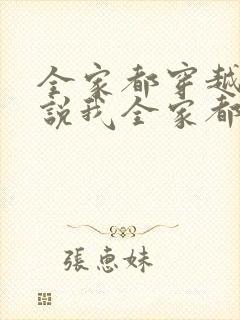 全家都穿越
說我全家都
張惠妹